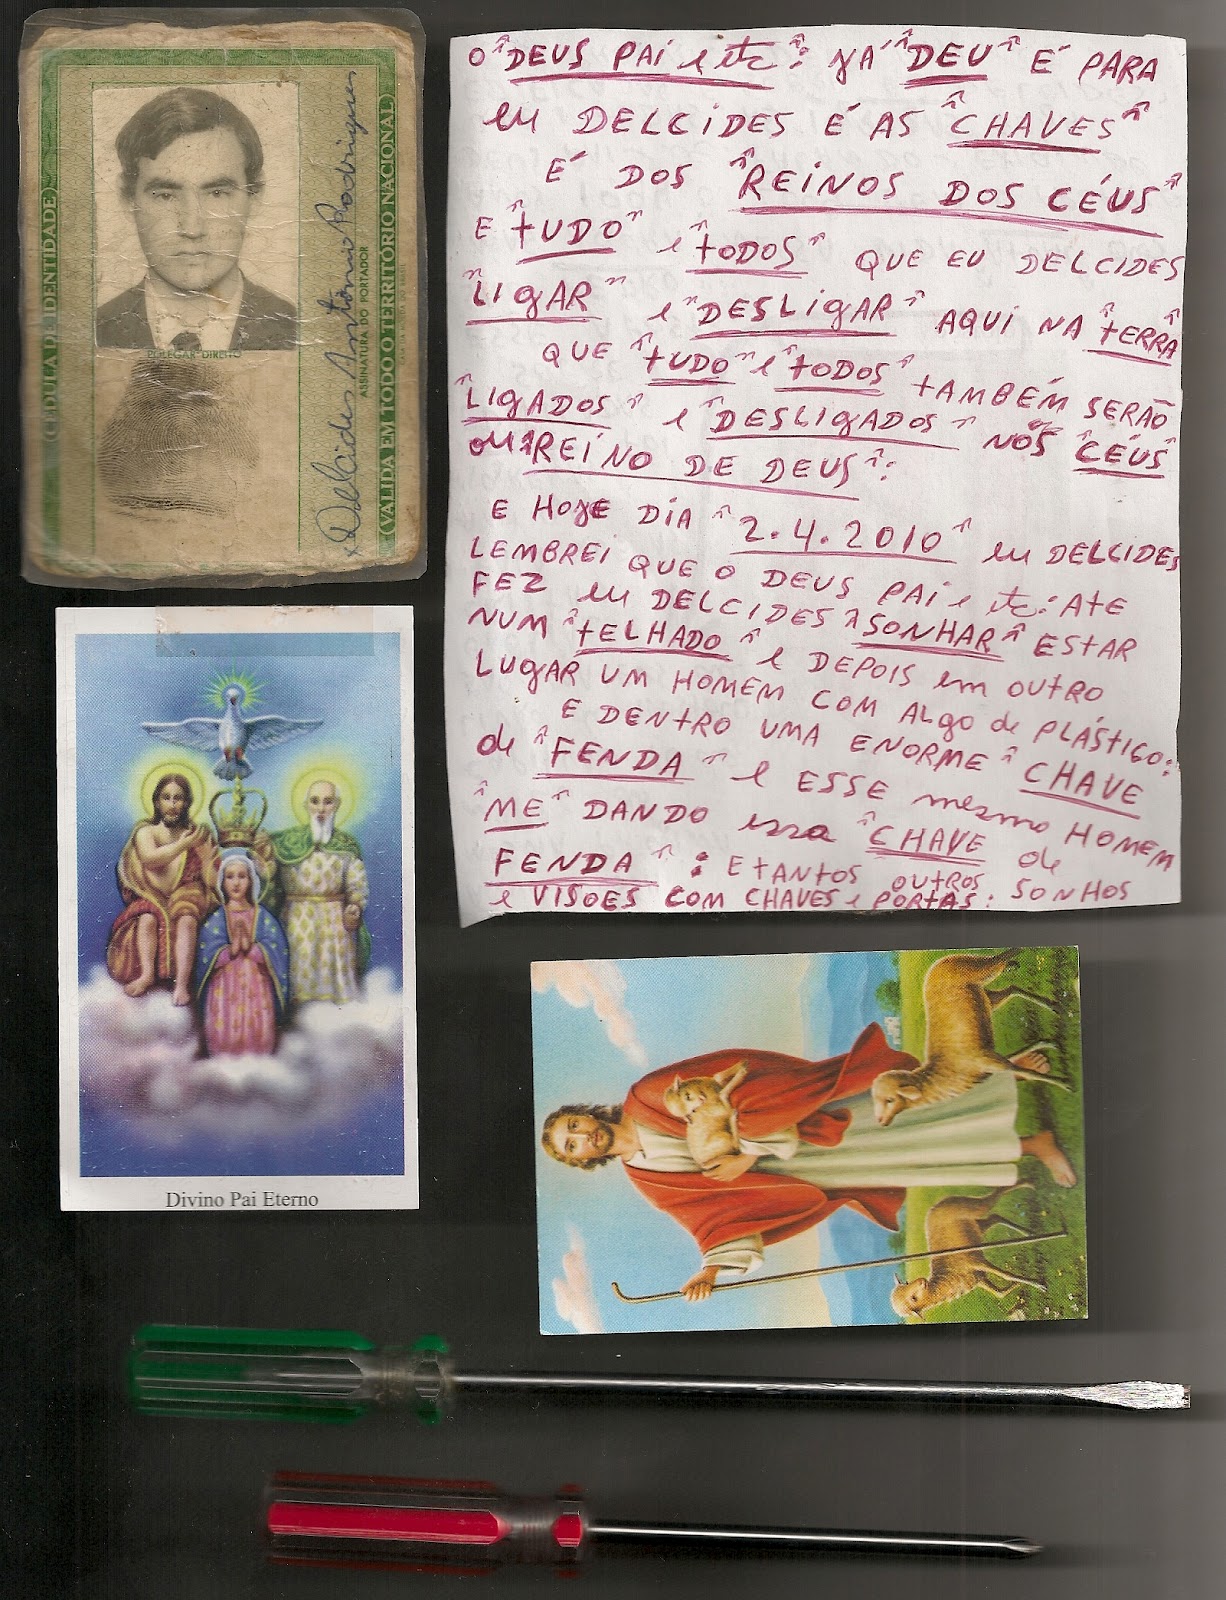 (CÉDULA DE IDENTIDADE)
POLEGAR DIREITO
Delcides Antônio Rodrigues
ASSINATURA DO PORTADOR
(VALIDA EM TODO O TERRITÓRIO NACIONAL)
O "DEUS PAI e etc": YÁ "DEU" É PARA
eu DELCIDES É AS "CHAVES"
É DOS "REINOS DOS CÉUS"
E "tUDO" e "tODOS" QUE EU DELCIDES
"LIGAR" e "DESLIGAR" AQUI NA "tERRA"
QUE "tUDO" e "tODOS" tAMBÉM SERÃO
"LIGADOS" e "DESLIGADOS" NOS "CÉUS"
OU "REINO DE DEUS":
E HOJE DIA "2.4.2010" eu DELCIDES
LEMBREI QUE O DEUS PAI e etc: ATE
FEZ eu DELCIDES "SONHAR" EStAR
NUM "tELHADO" e DEPOIS em OUTRO
LUGAR UM HOMEM COM ALGO de PLÁSTICO:
E DENtRO UMA ENORME "CHAVE
de "FENDA" e ESSE mesmo HOMEM
"ME" DANDO essa "CHAVE de
FENDA": E tANTOS OUTROS SONHOS
e VISOES COM CHAVES e PORTAS:
Divino Pai Eterno